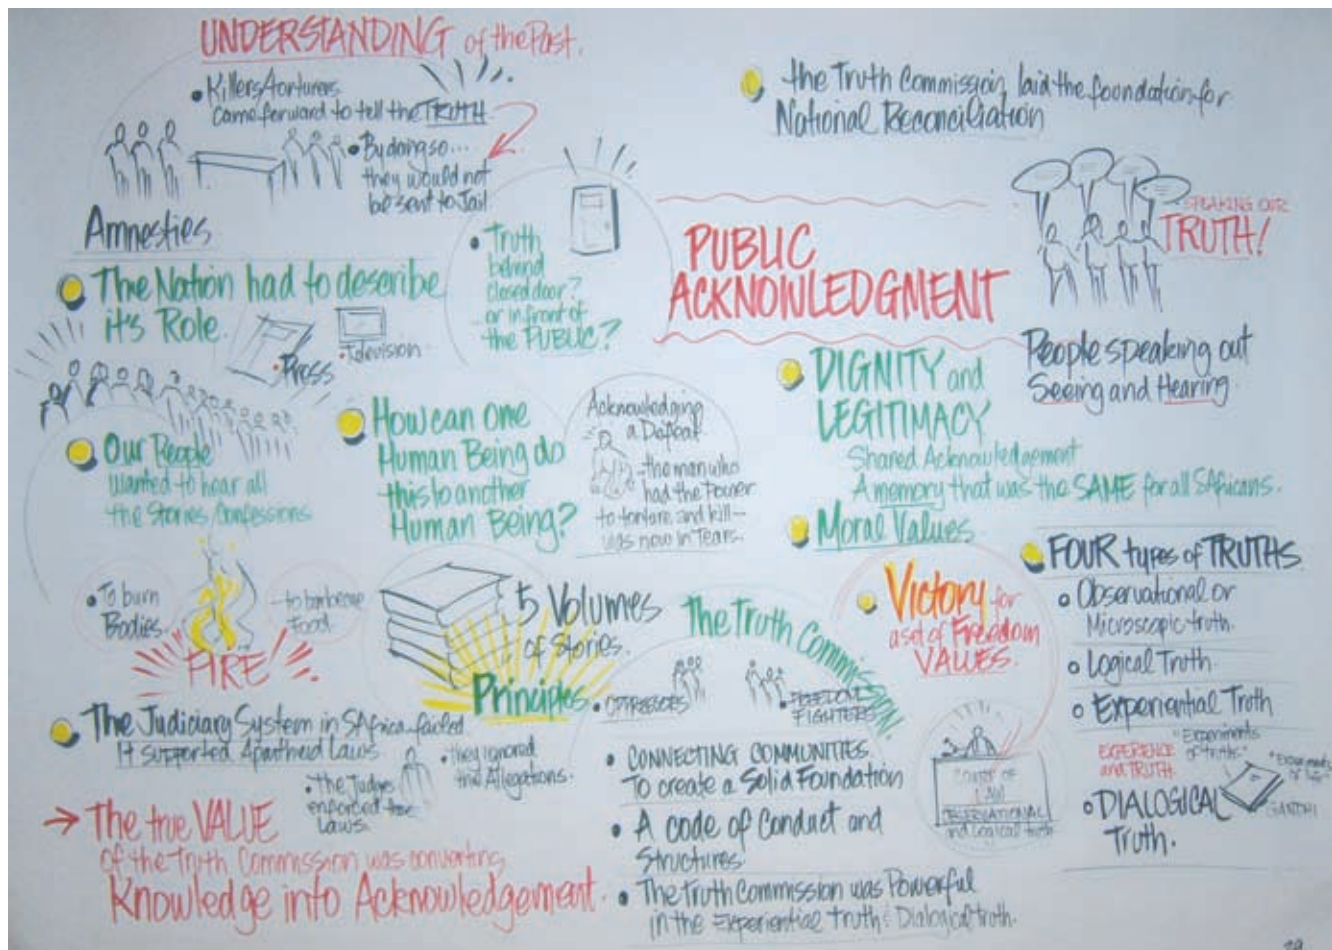 UNDERSTANDING of the Past.
• Killers/torturers
came forward to tell the TRUTH
• By doing so...
they would not
be sent to Jail
Amnesties
The Nation had to describe
it's Role.
• Press
• Television
• Truth
behind
closed door?
or in front of
the PUBLIC?
Our People
wanted to hear all
the Stories/Confessions
How can one
Human Being do
this to another
Human Being?
Acknowledging
a Defeat
-the man who
had the Power
to torture and kill-
was now in Tears.
• To burn
Bodies.
-to barbecue
Food
FIRE
5 Volumes
of Stories.
Principles
The Judiciary System in SAfrica failed
It supported Apartheid Laws
• The Judges
enforced the
Laws.
• they ignored
the Allegations.
→ The true VALUE
of the Truth Commission was converting
Knowledge into Acknowledgement.
the Truth Commission laid the foundation for
National Reconciliation
SPEAKING OUR
TRUTH!
PUBLIC
ACKNOWLEDGMENT
People speaking out
Seeing and Hearing
DIGNITY and
LEGITIMACY
Shared Acknowledgement
A memory that was the SAME for all SAfricans.
Moral Values
The Truth Commission
• OPPRESSORS
• FREEDOM
FIGHTERS
Victory for
a set of Freedom
VALUES.
• CONNECTING COMMUNITIES
To create a Solid Foundation
• A code of Conduct and
Structures
• The Truth Commission was Powerful
in the Experiential truth & Dialogical truth.
COURT OF
LAW
OBSERVATIONAL
and Logical truth
FOUR types of TRUTHS
Observational or
Microscopic truth.
Logical Truth
Experiential Truth
EXPERIENCE
and TRUTH
"Experiments
of truths"
GANDHI
DIALOGICAL
Truth.